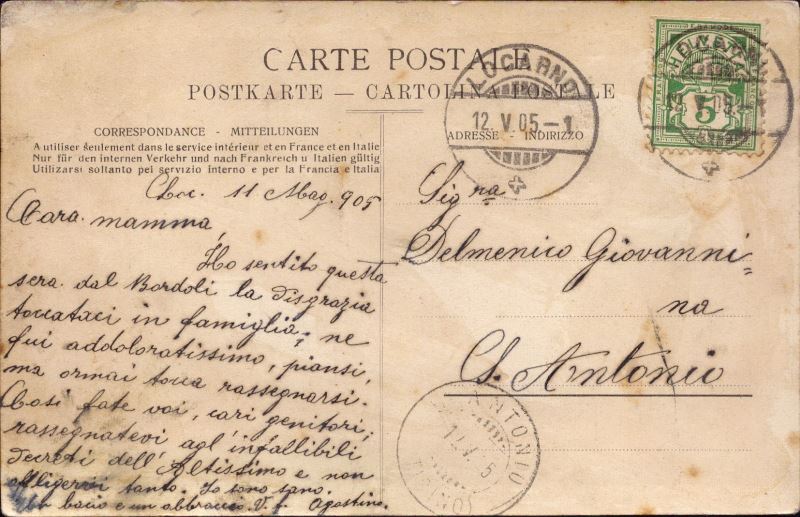 CARTE POSTALE
POSTKARTE — CARTOLINA POSTALE
CORRESPONDANCE - MITTEILUNGEN
A utiliser seulement dans le service intérieur et en France et en Italie
Nur für den internen Verkehr und nach Frankreich u Italien gültig
Utilizarsi soltanto pei servizio interno e per la Francia e Italia
ADRESSE - INDIRIZZO
LOCARNO
12.V.05-1
HELVETIA
5
12.V.05-1
Loc. 11 Mag. 905
Cara mamma,
Ho sentito questa
sera dal Bordoli la disgrazia
toccataci in famiglia; ne
fui addoloratissimo, piansi,
ma ormai tocca rassegnarsi.
Così fate voi, cari genitori,
rassegnatevi agl'infallibili
decreti dell'Altissimo e non
affliggervi tanto. Io sono sano.
Un bacio e un abbraccio V. Agostino.
Sigra
Delmenico Giovanni-
na
S. Antonio
ANTONIO
(TICINO)